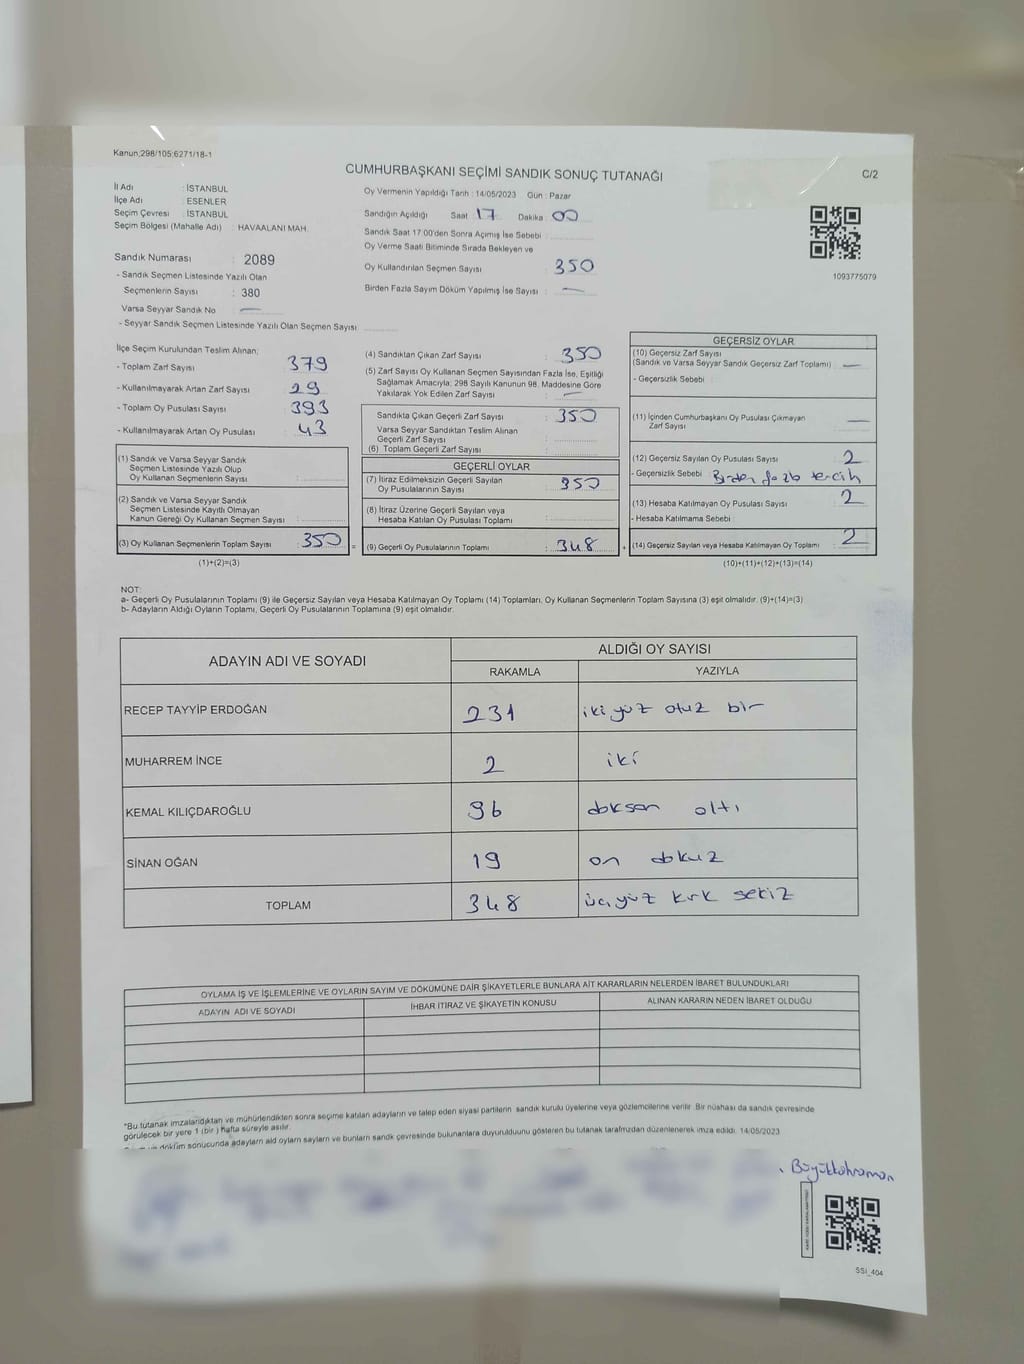 Kanun;298/105;6271/18-1
CUMHURBAŞKANI SEÇİMİ SANDIK SONUÇ TUTANAĞI
C/2
İl Adı : İSTANBUL
İlçe Adı : ESENLER
Seçim Çevresi : İSTANBUL
Seçim Bölgesi (Mahalle Adı) : HAVAALANI MAH.
Sandık Numarası : 2089
- Sandık Seçmen Listesinde Yazılı Olan
Seçmenlerin Sayısı : 380
Varsa Seyyar Sandık No : —
- Seyyar Sandık Seçmen Listesinde Yazılı Olan Seçmen Sayısı
Oy Vermenin Yapıldığı Tarih : 14/05/2023 Gün : Pazar
Sandığın Açıldığı Saat : 17 Dakika : 00
Sandık Saat 17:00'den Sonra Açımış İse Sebebi :
Oy Verme Saati Bitiminde Sırada Bekleyen ve
Oy Kullandırılan Seçmen Sayısı : 350
Birden Fazla Sayım Döküm Yapılmış İse Sayısı : —
1093775079
İlçe Seçim Kurulundan Teslim Alınan;
- Toplam Zarf Sayısı : 379
- Kullanılmayarak Artan Zarf Sayısı : 29
- Toplam Oy Pusulası Sayısı : 393
- Kullanılmayarak Artan Oy Pusulası : 43
(1) Sandık ve Varsa Seyyar Sandık
Seçmen Listesinde Yazılı Olup
Oy Kullanan Seçmenlerin Sayısı :
(2) Sandık ve Varsa Seyyar Sandık
Seçmen Listesinde Kayıtlı Olmayan
Kanun Gereği Oy Kullanan Seçmen Sayısı :
(3) Oy Kullanan Seçmenlerin Toplam Sayısı : 350
(1)+(2)=(3)
(4) Sandıktan Çıkan Zarf Sayısı : 350
(5) Zarf Sayısı Oy Kullanan Seçmen Sayısından Fazla İse, Eşitliği
Sağlamak Amacıyla; 298 Sayılı Kanunun 98. Maddesine Göre
Yakılarak Yok Edilen Zarf Sayısı : —
Sandıkta Çıkan Geçerli Zarf Sayısı : 350
Varsa Seyyar Sandıktan Teslim Alınan
Geçerli Zarf Sayısı :
(6) Toplam Geçerli Zarf Sayısı :
GEÇERLİ OYLAR
(7) İtiraz Edilmeksizin Geçerli Sayılan
Oy Pusulalarının Sayısı : 350
(8) İtiraz Üzerine Geçerli Sayılan veya
Hesaba Katılan Oy Pusulası Toplamı :
= (9) Geçerli Oy Pusulalarının Toplamı : 348
GEÇERSİZ OYLAR
(10) Geçersiz Zarf Sayısı
(Sandık ve Varsa Seyyar Sandık Geçersiz Zarf Toplamı) : —
- Geçersizlik Sebebi :
(11) İçinden Cumhurbaşkanı Oy Pusulası Çıkmayan
Zarf Sayısı : —
(12) Geçersiz Sayılan Oy Pusulası Sayısı : 2
- Geçersizlik Sebebi : Birden fazla tercih
(13) Hesaba Katılmayan Oy Pusulası Sayısı : 2
- Hesaba Katılmama Sebebi :
+ (14) Geçersiz Sayılan veya Hesaba Katılmayan Oy Toplamı : 2
(10)+(11)+(12)+(13)=(14)
NOT:
a- Geçerli Oy Pusulalarının Toplamı (9) ile Geçersiz Sayılan veya Hesaba Katılmayan Oy Toplamı (14) Toplamları, Oy Kullanan Seçmenlerin Toplam Sayısına (3) eşit olmalıdır. (9)+(14)=(3)
b- Adayların Aldığı Oyların Toplamı, Geçerli Oy Pusulalarının Toplamına (9) eşit olmalıdır.
ADAYIN ADI VE SOYADI
ALDIĞI OY SAYISI
RAKAMLA YAZIYLA
RECEP TAYYİP ERDOĞAN 231 iki yüz otuz bir
MUHARREM İNCE 2 iki
KEMAL KILIÇDAROĞLU 96 doksan altı
SİNAN OĞAN 19 on dokuz
TOPLAM 348 üçyüz kırk sekiz
OYLAMA İŞ VE İŞLEMLERİNE VE OYLARIN SAYIM VE DÖKÜMÜNE DAİR ŞİKAYETLERLE BUNLARA AİT KARARLARIN NELERDEN İBARET BULUNDUKLARI
ADAYIN ADI VE SOYADI İHBAR İTİRAZ VE ŞİKAYETİN KONUSU ALINAN KARARIN NEDEN İBARET OLDUĞU
*Bu tutanak imzalandıktan ve mühürlendikten sonra seçime katılan adayların ve talep eden siyasi partilerin sandık kurulu üyelerine veya gözlemcilerine verilir. Bir nüshası da sandık çevresinde
görülecek bir yere 1 (bir ) hafta süreyle asılır.
döküm sonucunda adayların ald oyların sayların ve bunların sandk çevresinde bulunanlara duyurulduunu gösteren bu tutanak tarafmzdan düzenlenerek imza edildi. 14/05/2023
Büyükkahraman
SSI_404